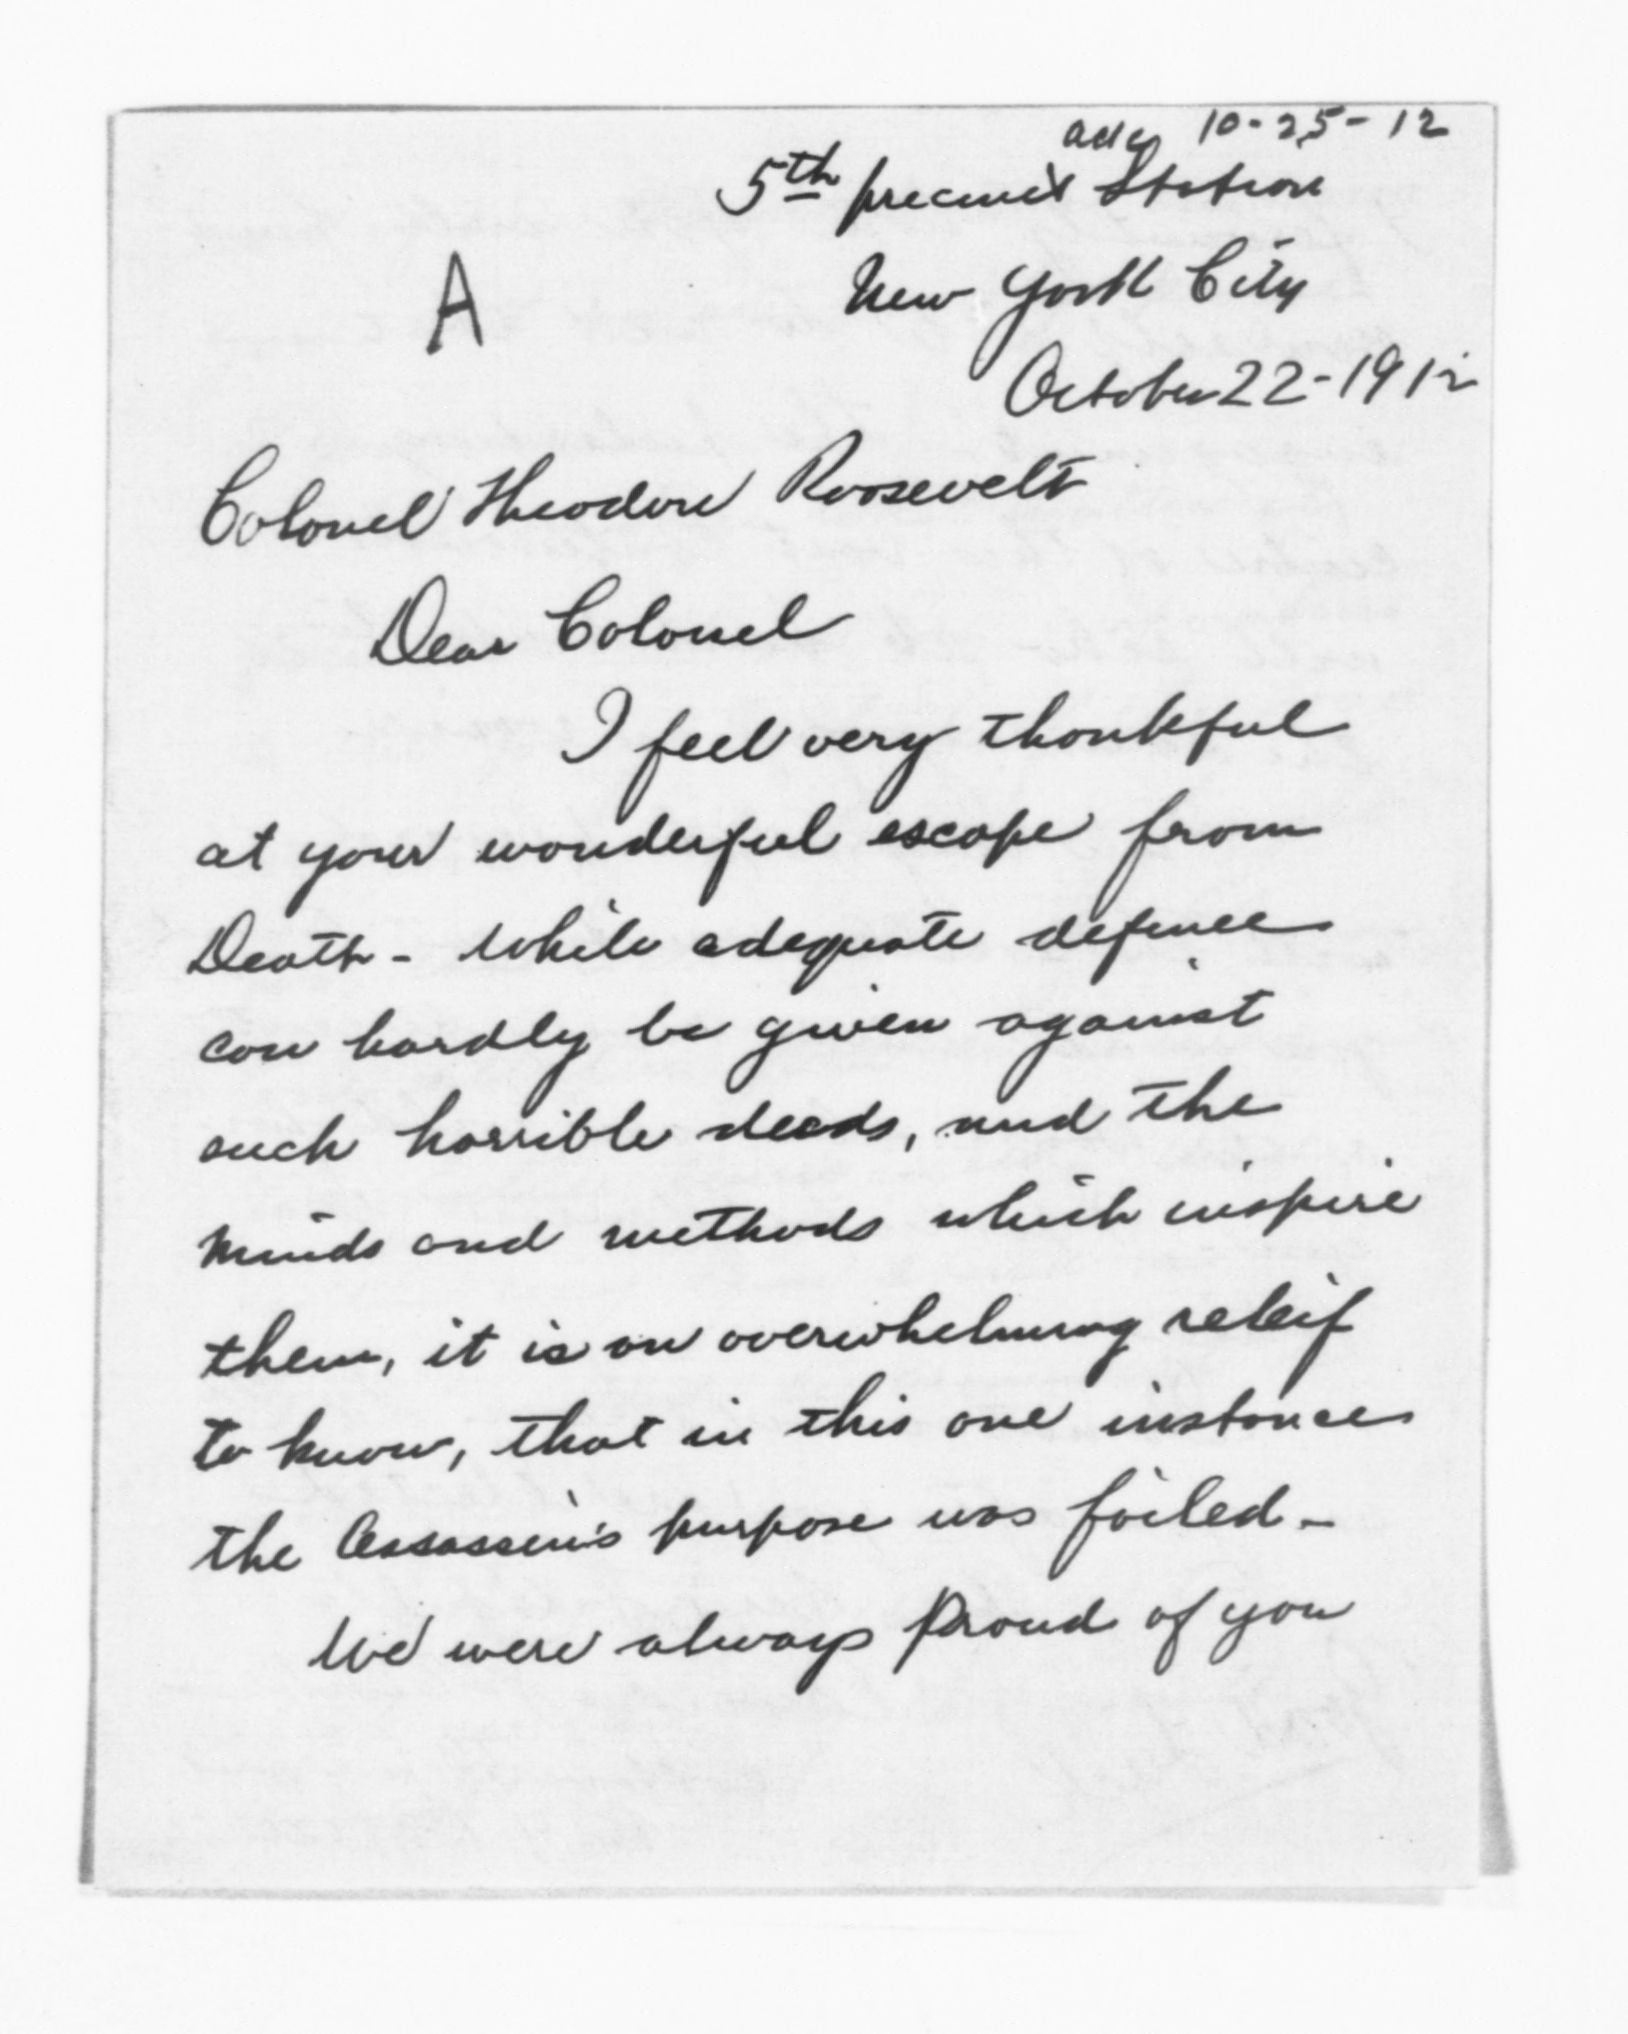 ack 10-25-12
5th precinct Station
A
New York City
October 22-1912
Colonel Theodore Roosevelt
Dear Colonel
I feel very thankful
at your wonderful escape from
Death - While adequate defence
can hardly be given against
such horrible deeds, and the
minds and methods which inspire
them, it is an overwhelming releif
to know, that in this one instance
the Assassin's purpose was foiled -
We were always Proud of you